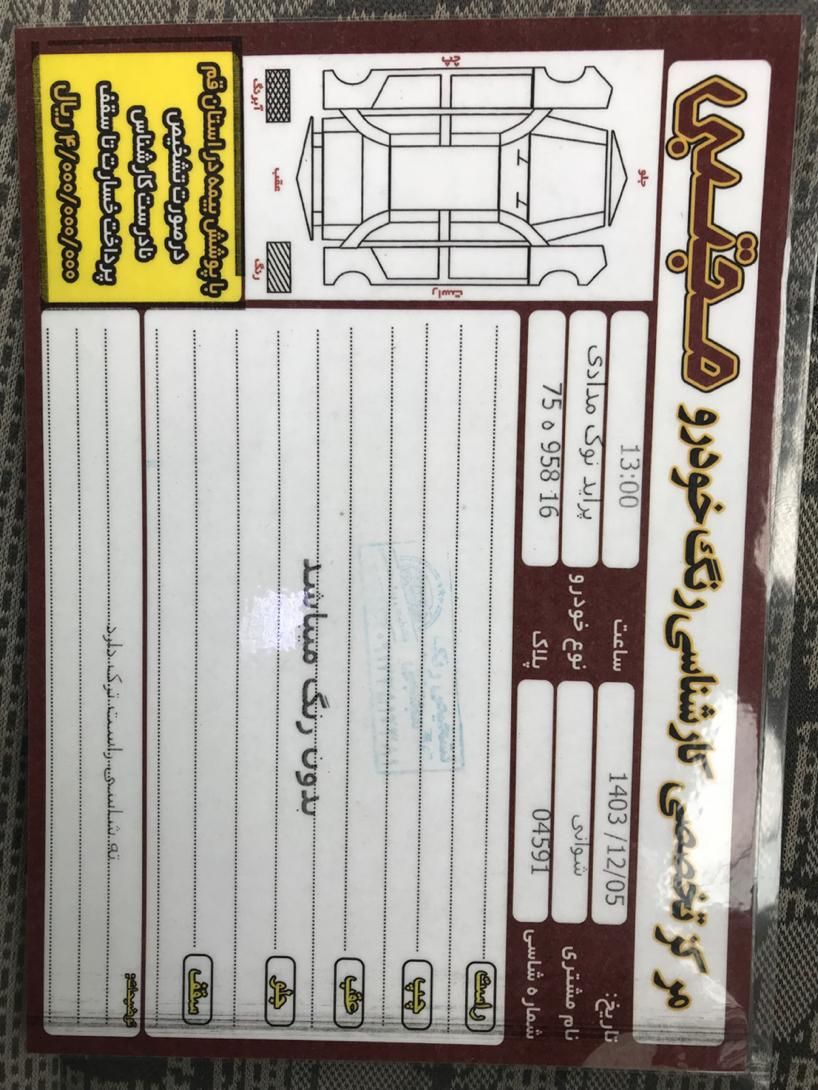 مرکز تخصصی کارشناسی رنگ خودرو مجتبی
تاریخ: 1403/12/05
ساعت 13:00
نام مشتری شوانی
نوع خودرو پراید نوک مدادی
شماره شاسی 04591
پلاک 75 ه 958 16
جلو
راست
چپ
عقب
رنگ
آبرنگ
با پوشش بیمه در استان قم
در صورت تشخیص
نادرست کارشناس
پرداخت خسارت تا سقف
۴/۰۰۰/۰۰۰/۰۰۰ ریال
راست
چپ
عقب
جلو
سقف
تشخیص رنگ
بدون رنگ میباشد
توضیحات:
ته شاسی راست ترک دارد